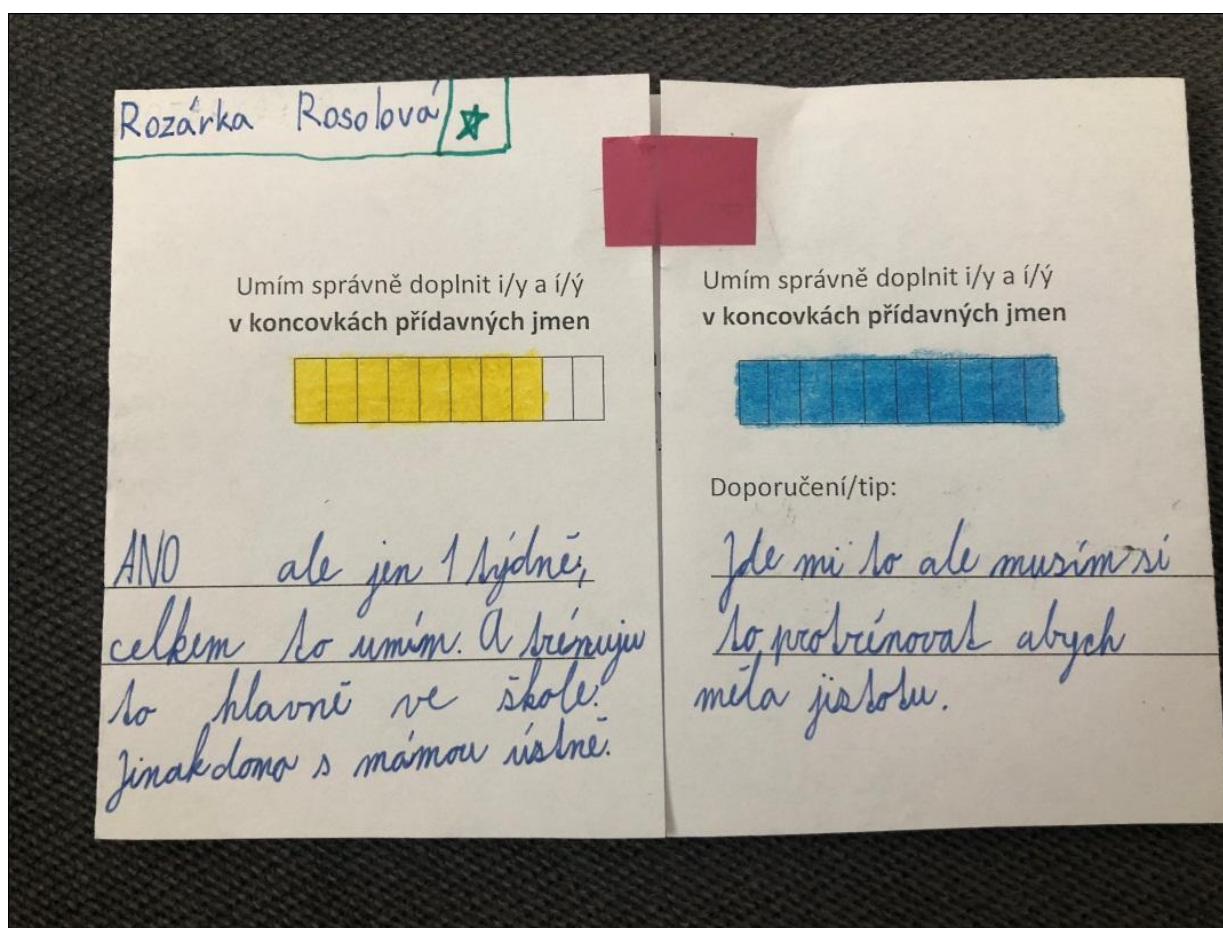 Rozárka Rosolová
Umím správně doplnit i/y a í/ý
v koncovkách přídavných jmen
ANO ale jen 1 týdně,
celkem to umím. A trénuju
to hlavně ve škole.
Jinak doma s mámou ústně.
Umím správně doplnit i/y a í/ý
v koncovkách přídavných jmen
Doporučení/tip:
Jde mi to ale musím si
to protrénovat abych
měla jistotu.